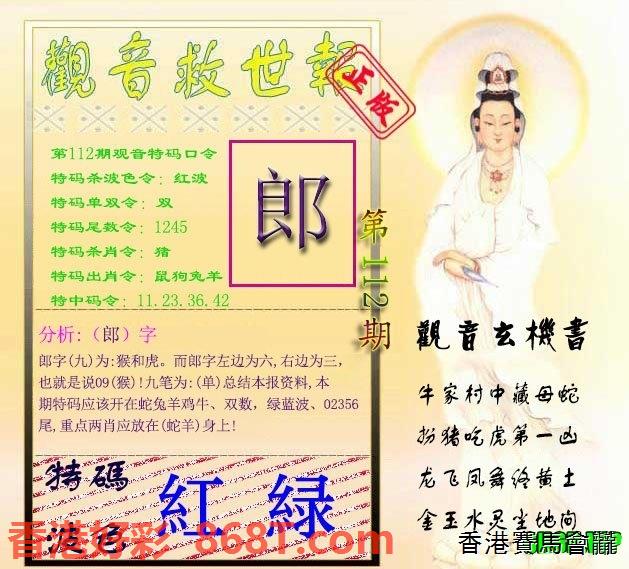 觀音救世報
正版
第112期观音特码口令
特码杀波色令：红波
特码单双令：双
特码尾数令：1245
特码杀肖令：猪
特码出肖令：鼠狗兔羊
特中码令：11.23.36.42
郎
第112期
分析:（郎）字
郎字(九)为:猴和虎。而郎字左边为六,右边为三,
也就是说09(猴)!九笔为:(单)总结本报资料,本
期特码应该开在蛇兔羊鸡牛、双数，绿蓝波、02356
尾,重点两肖应放在(蛇羊)身上!
特碼
波色
紅 緑
香港好彩 868T.com
觀音玄機書
牛家村中藏母蛇
扮猪吃虎第一凶
龙飞凤舞终黄土
金玉水灵尘地间
香港賽馬會